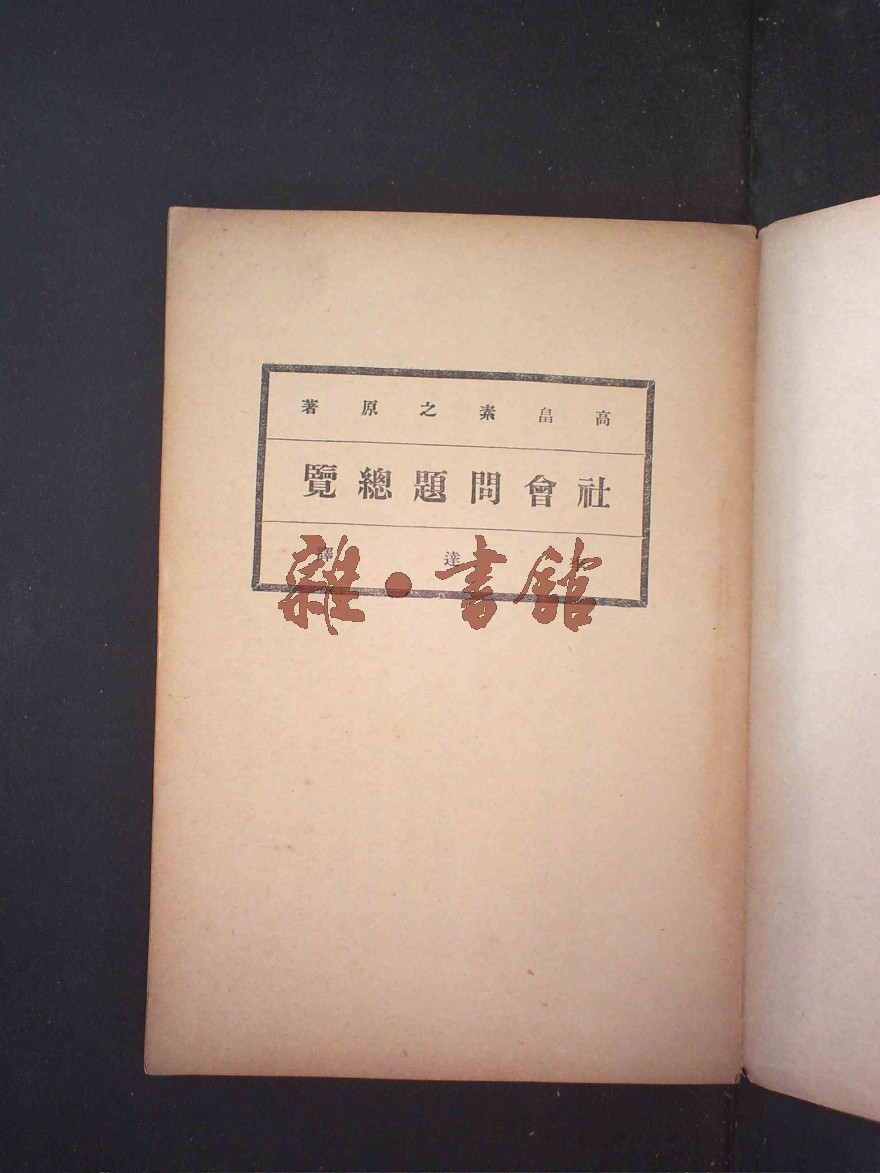 高畠素之原著
社會問題總覽
達譯
雜·書館